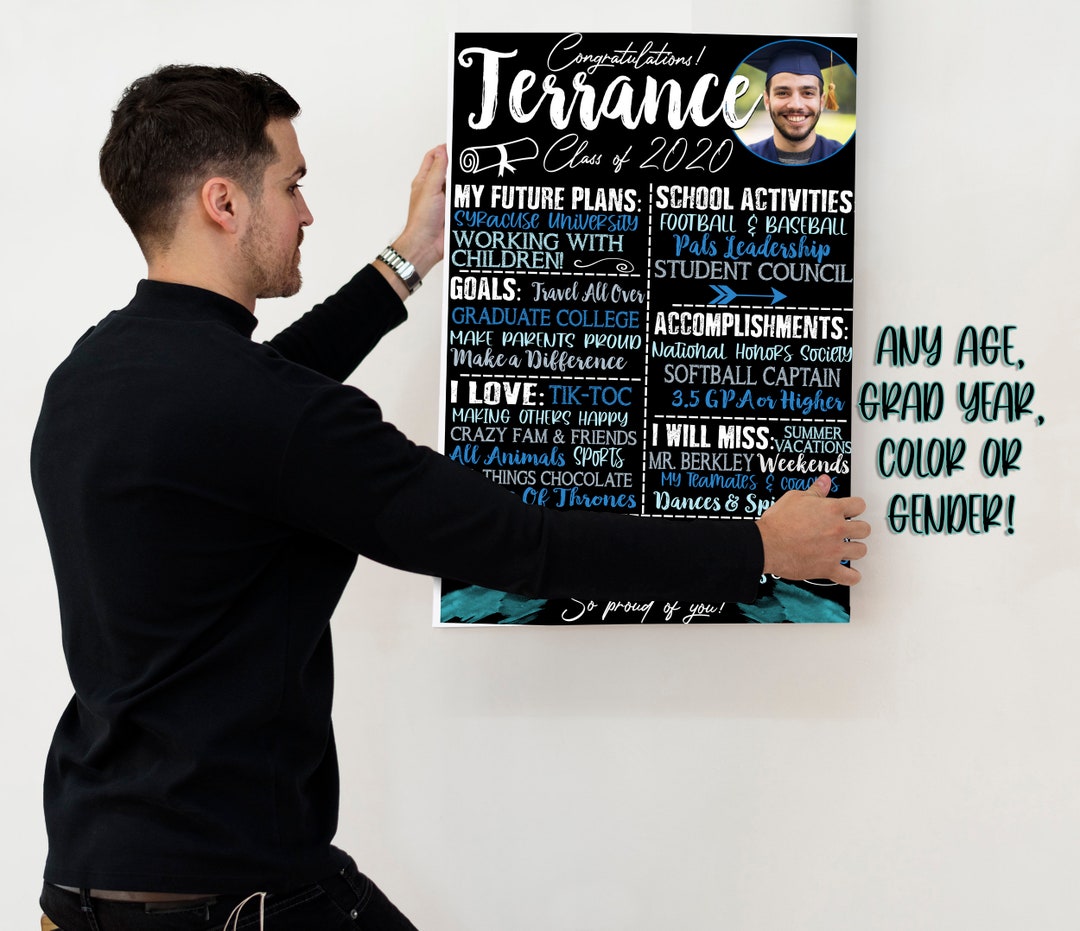 Congratulations!
Terrance
Class of 2020
MY FUTURE PLANS:
SYRACUSE UNIVERSITY
WORKING WITH
CHILDREN!
GOALS: Travel All Over
GRADUATE COLLEGE
MAKE PARENTS PROUD
Make a Difference
I LOVE: TIK-TOC
MAKING OTHERS HAPPY
CRAZY FAM & FRIENDS
All Animals SPORTS
THINGS CHOCOLATE
Of Thrones
SCHOOL ACTIVITIES
FOOTBALL & BASEBALL
Pals Leadership
STUDENT COUNCIL
ACCOMPLISHMENTS:
National Honors Society
SOFTBALL CAPTAIN
3.5 GPA or Higher
I WILL MISS: SUMMER
VACATIONS
MR. BERKLEY Weekends
MY Teamates & coaches
Dances &
So proud of you!
ANY AGE,
GRAD YEAR,
COLOR OR
GENDER!